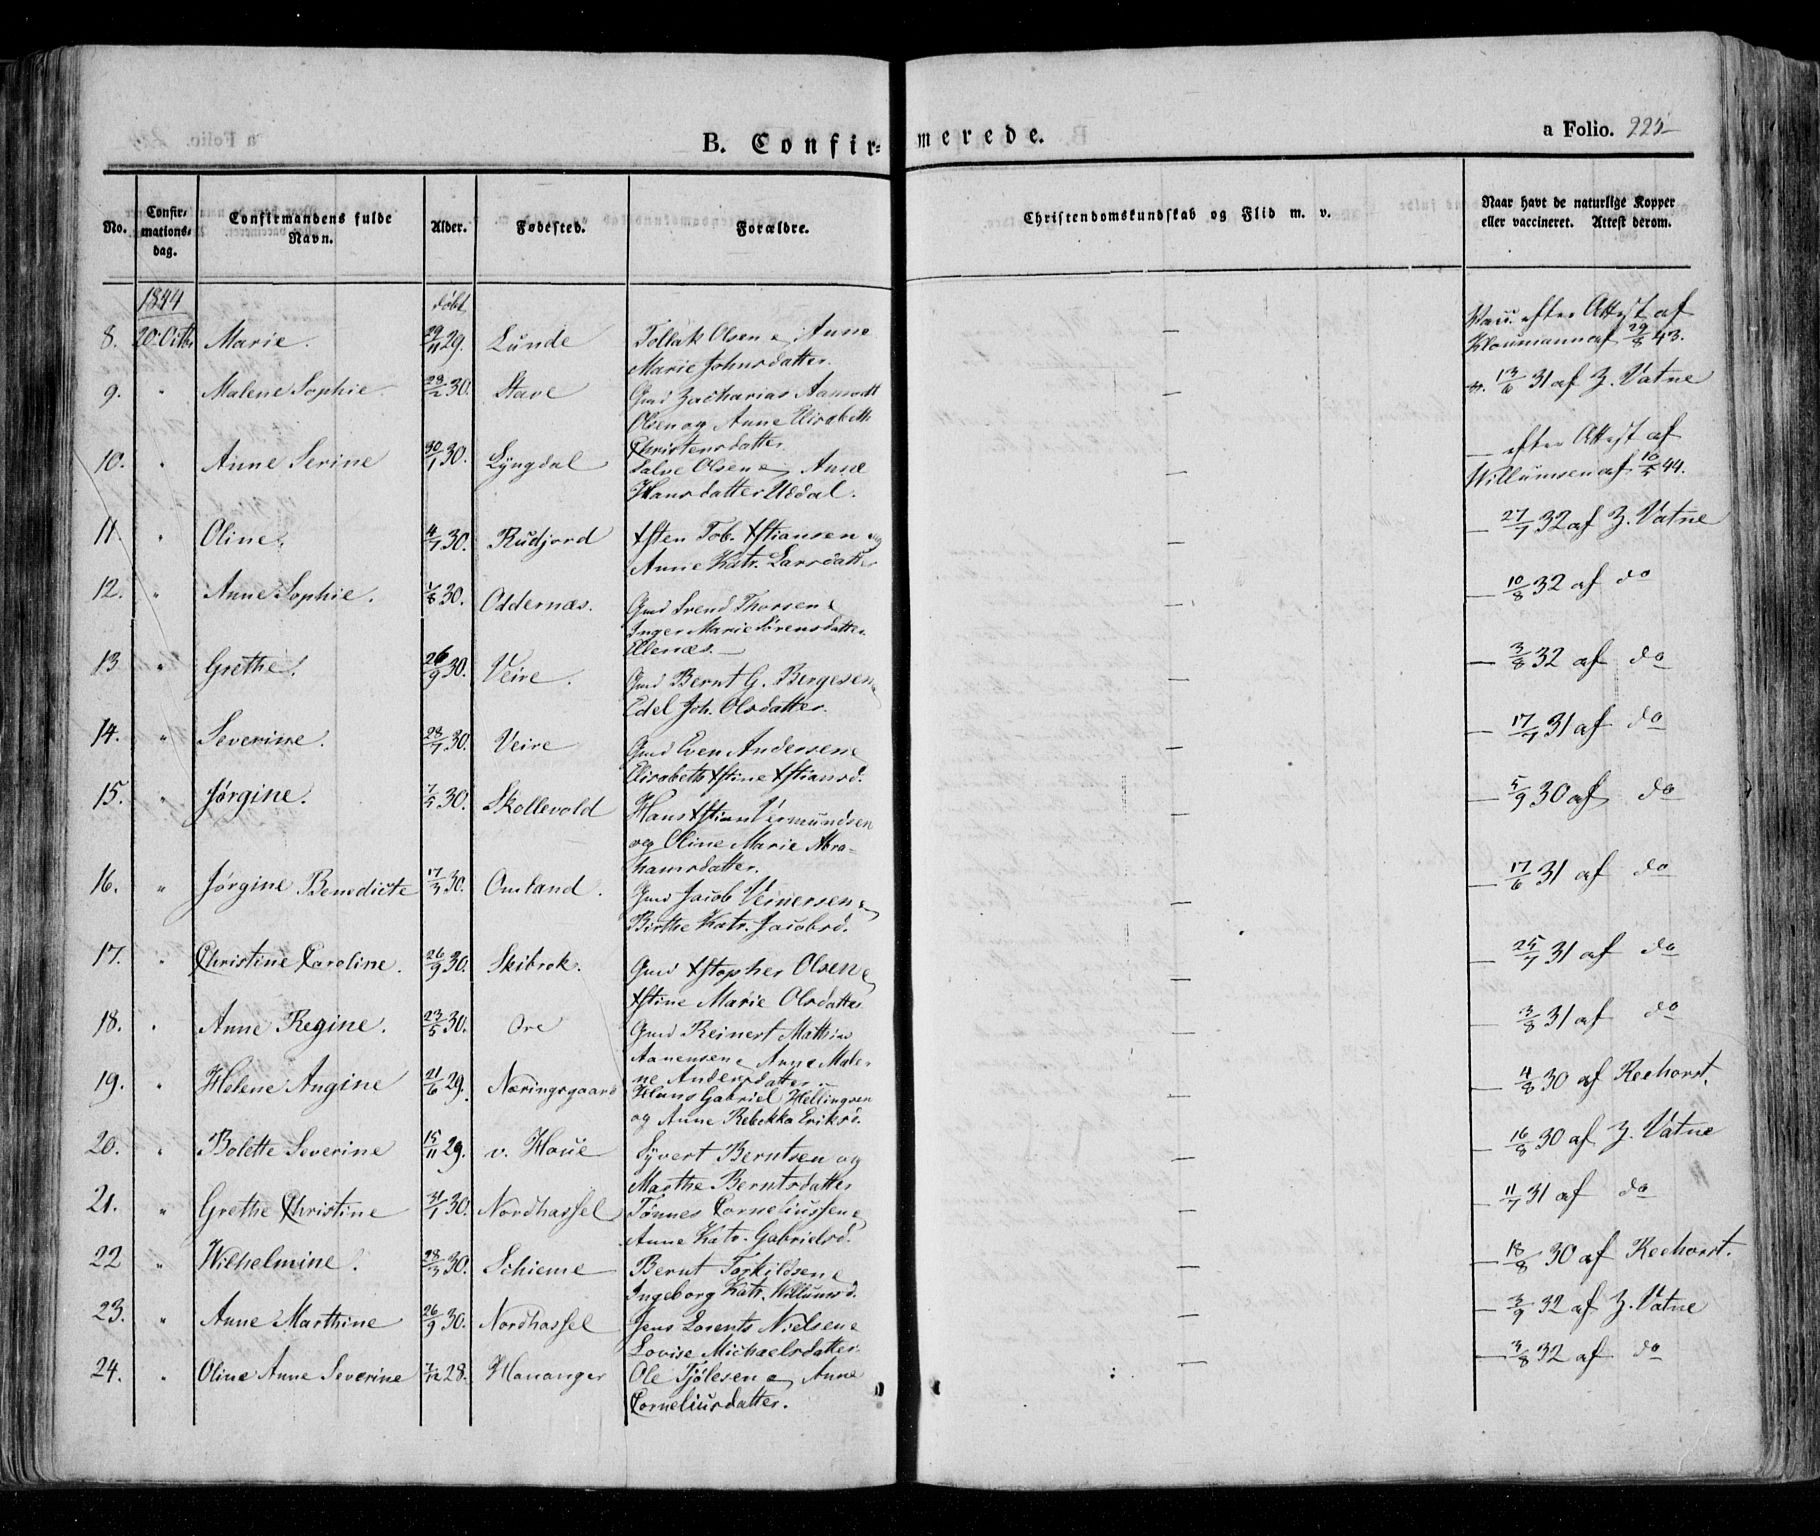 B. Confir=merede.
a Folio. 225
No.
Confirmationsdag.
Confirmandens fulde Navn.
Alder.
Fødested.
Forældre.
Christendomskundskab og Flid m. v.
Naar havt de naturlige Kopper eller vaccineret. Attest derom.
1844 døbt
8. 20. Octbr Marie. 29/11 29. Lunde Tollak Olsen & Anne Marie Johnsdatter. Vacc. efter Attest af Kloumann af 29/8 43.
9. " Malene Sophie. 28/2 30. Stave Gmd Zacharias Aanodt Olsen og Anne Elisabeth Christensdatter — 13/6 31 af Z. Vatne
10. " Anne Serine 30/1 30. Lyngdal Salve Olsen & Anne Hansdatter Uddal. — efter Attest af Willumsen af 10/5 44.
11. " Oline. 4/7 30. Rudjord Xsten Tob. Xstiansen og Anne Katr. Larsdatter — 27/7 32 af Z. Vatne
12. " Anne Sophie. 1/8 30. Oddernæs. Gmd Svend Thorsen & Inger Marie Sørensdatter Ellenæs. — 10/8 32 af do
13 " Grethe. 26/9 30. Veire. Gmd Bernt G. Børgesen & Edel Joh. Olsdatter. — 3/8 32 af do
14. " Severine. 28/7 30. Veire Gmd Even Andersen & Elisabeth Xstine Xstiansd. — 17/7 31 af do
15. " Jørgine. 7/5 30. Skollevold Hans Xstian Vermundsen og Oline Marie Abrahamsdatter. — 5/9 30 af do
16. " Jørgine Benedicte 17/3 30. Omland. Gmd Jacob Veiersen & Birthe Katr. Jacobsd. — 17/6 31 af do
17. " Christine Caroline. 26/9 30. Skibrok. Gmd Xstopher Olsen & Xstine Marie Olsdatter — 25/7 31 af do
18. " Anne Regine. 23/5 30. Ore Gmd Reinert Mathias Aanensen & Anne Malene Andersdatter — 3/8 31 af do
19. " Helene Angine 21/6 29. Næringsgaard Hans Gabriel Hellingsen og Anne Rebekka Eriksd. — 4/8 30 af Reehorst.
20. " Bolette Severine 15/11 29. v. Houe Syvert Berntsen og Marthe Berntsdatter — 16/8 30 af Z. Vatne
21. " Grethe Christine 31/1 30. Nordhassel Tønnes Corneliussen & Anne Katr. Gabrielsd. — 11/7 31 af do
22 " Wilhelmine. 28/3 30. Schieme Bernt Torkildsen & Ingeborg Katr. Willumsd. — 18/8 30 af Reehorst.
23. " Anne Marthine 26/9 30. Nordhassel Jens Lorents Nielsen & Lovise Michaelsdatter — 3/9 32 af Z. Vatne
24. " Oline Anne Severine 7/12 28. Hananger Ole Tjølesen & Anne Corneliusdatter. — 3/8 32 af do